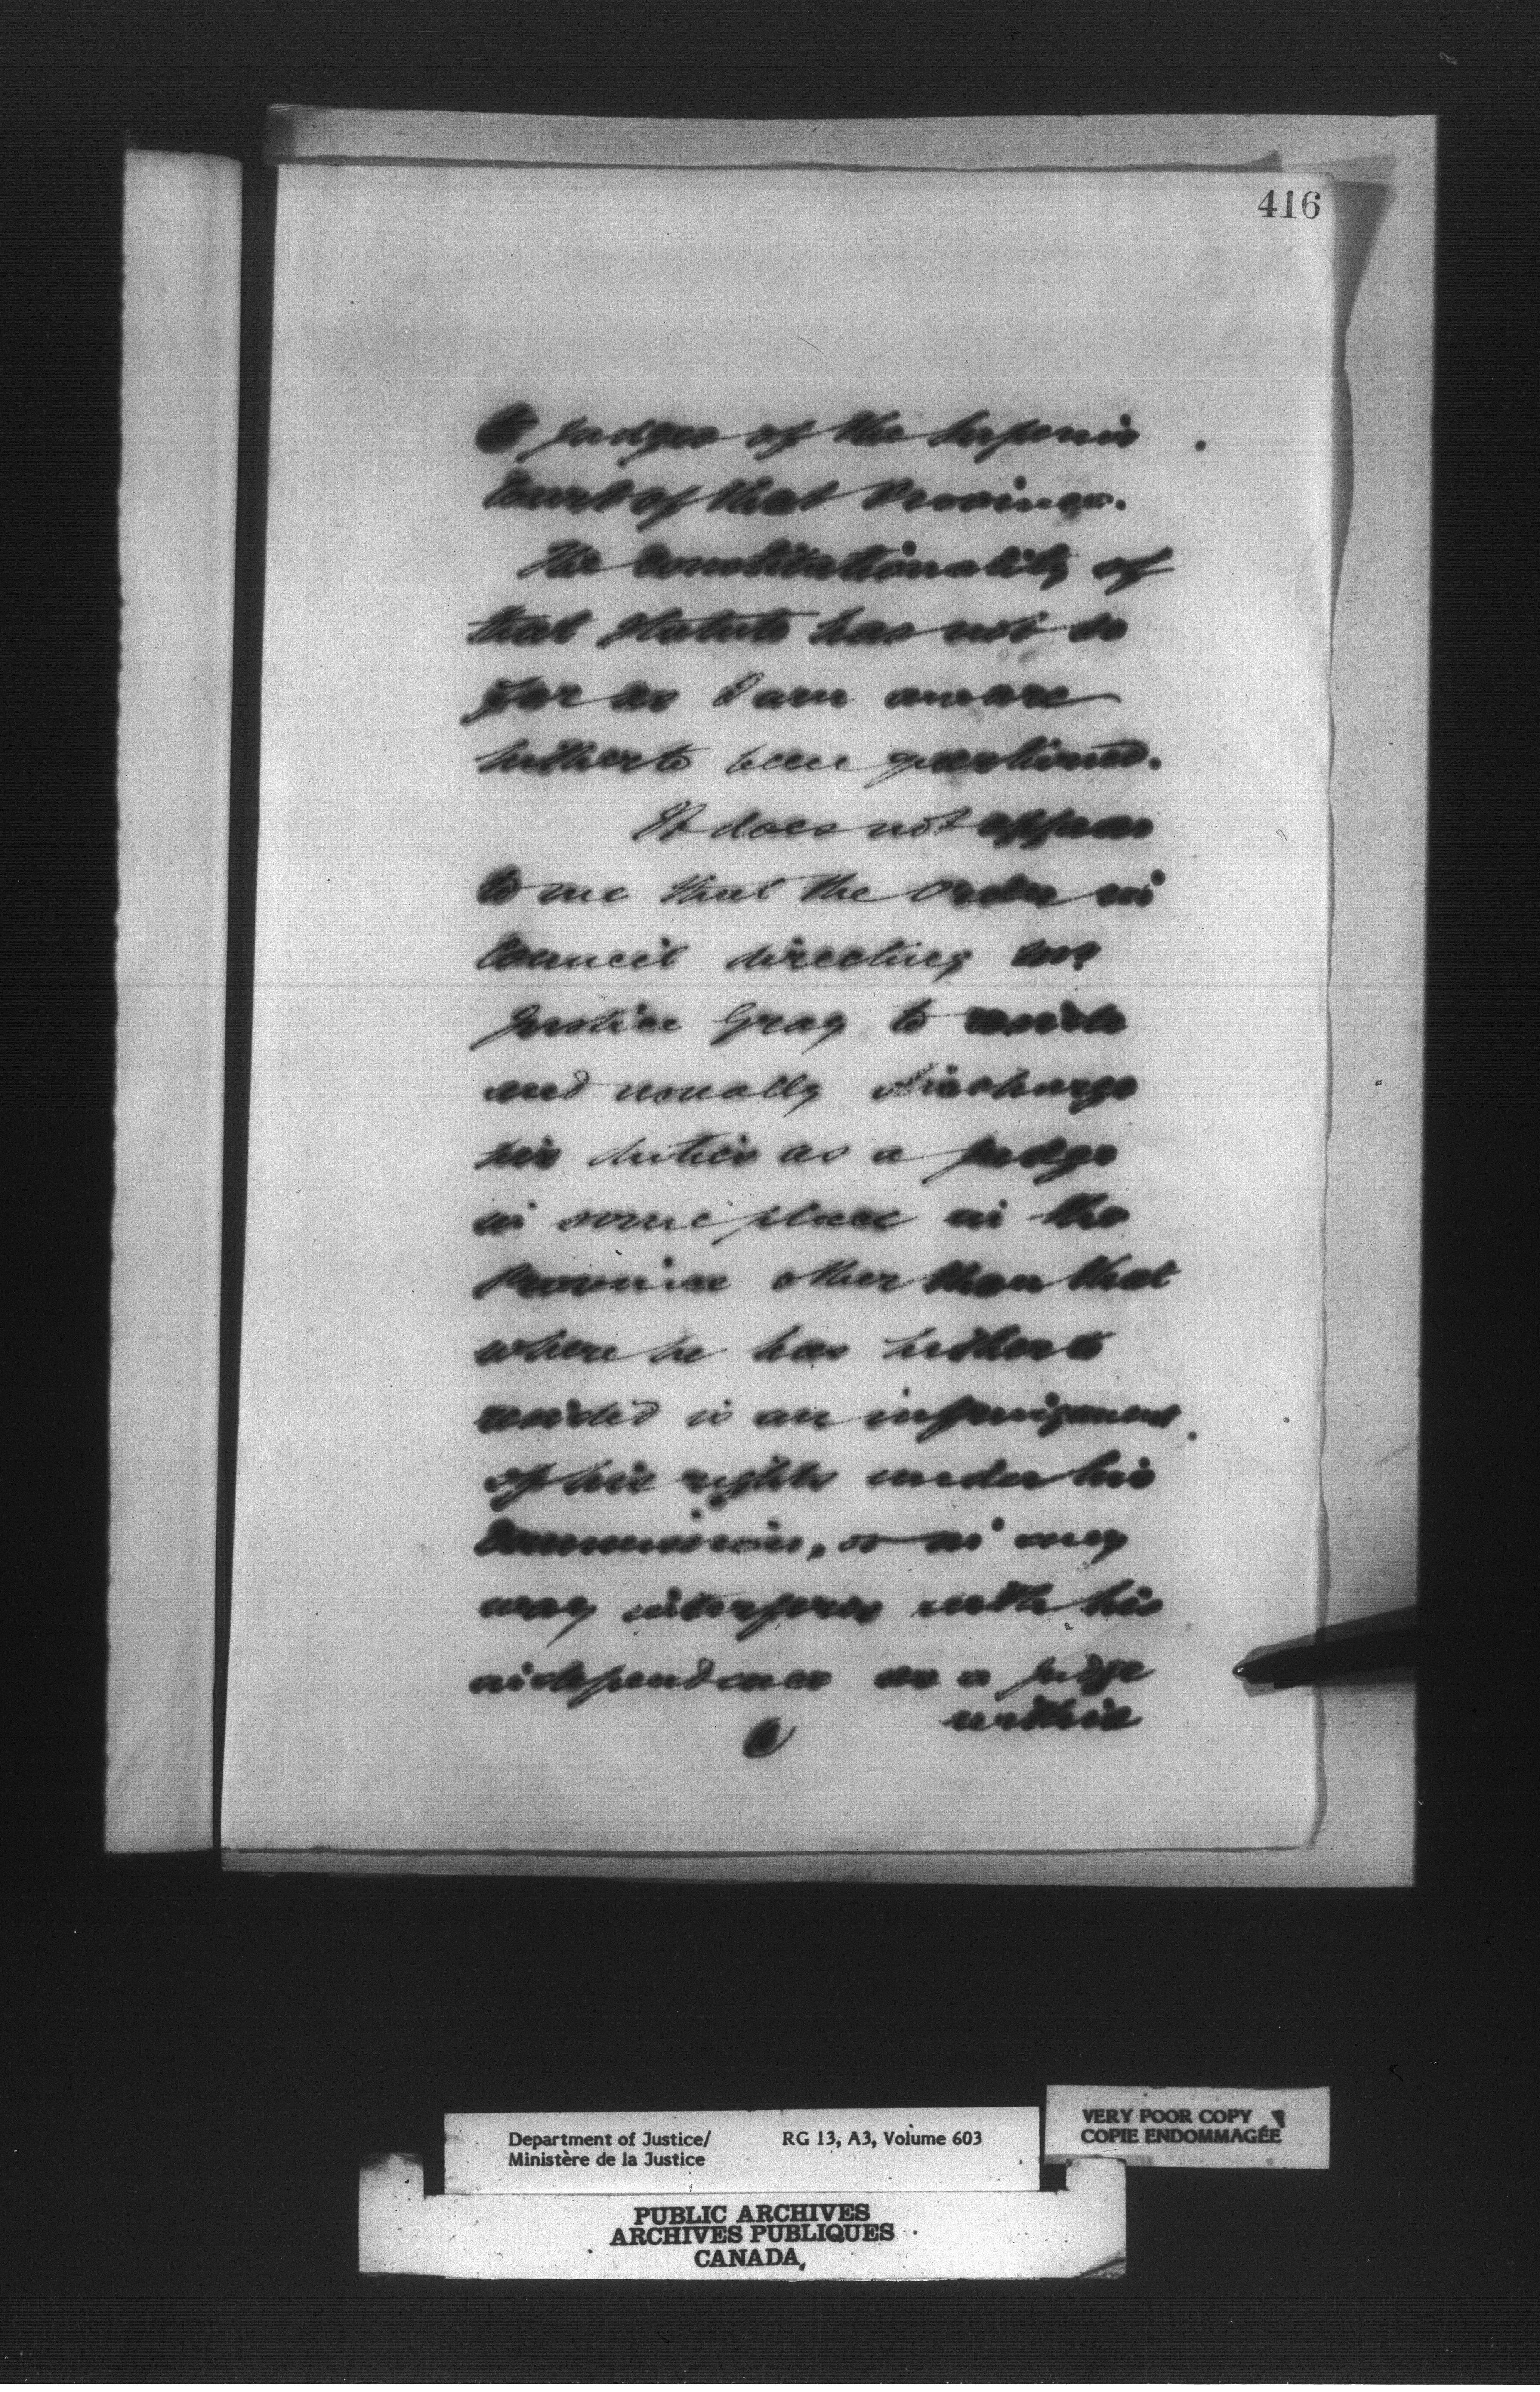 416
to judges of the Superior
Court of that Province.
The Constitutionality of
that Statute has not so
far as I am aware
hitherto been questioned.
It does not appear
to me that the Order in
Council directing Mr
Justice Gray to reside
and usually discharge
his duties as a judge
in some place in the
Province other than that
where he has hitherto
resided is an infringement
of his rights under his
Commission, or in any
way interferes with his
independence as a judge
within
Department of Justice/ RG 13, A3, Volume 603
Ministère de la Justice
VERY POOR COPY
COPIE ENDOMMAGÉE
PUBLIC ARCHIVES
ARCHIVES PUBLIQUES
CANADA